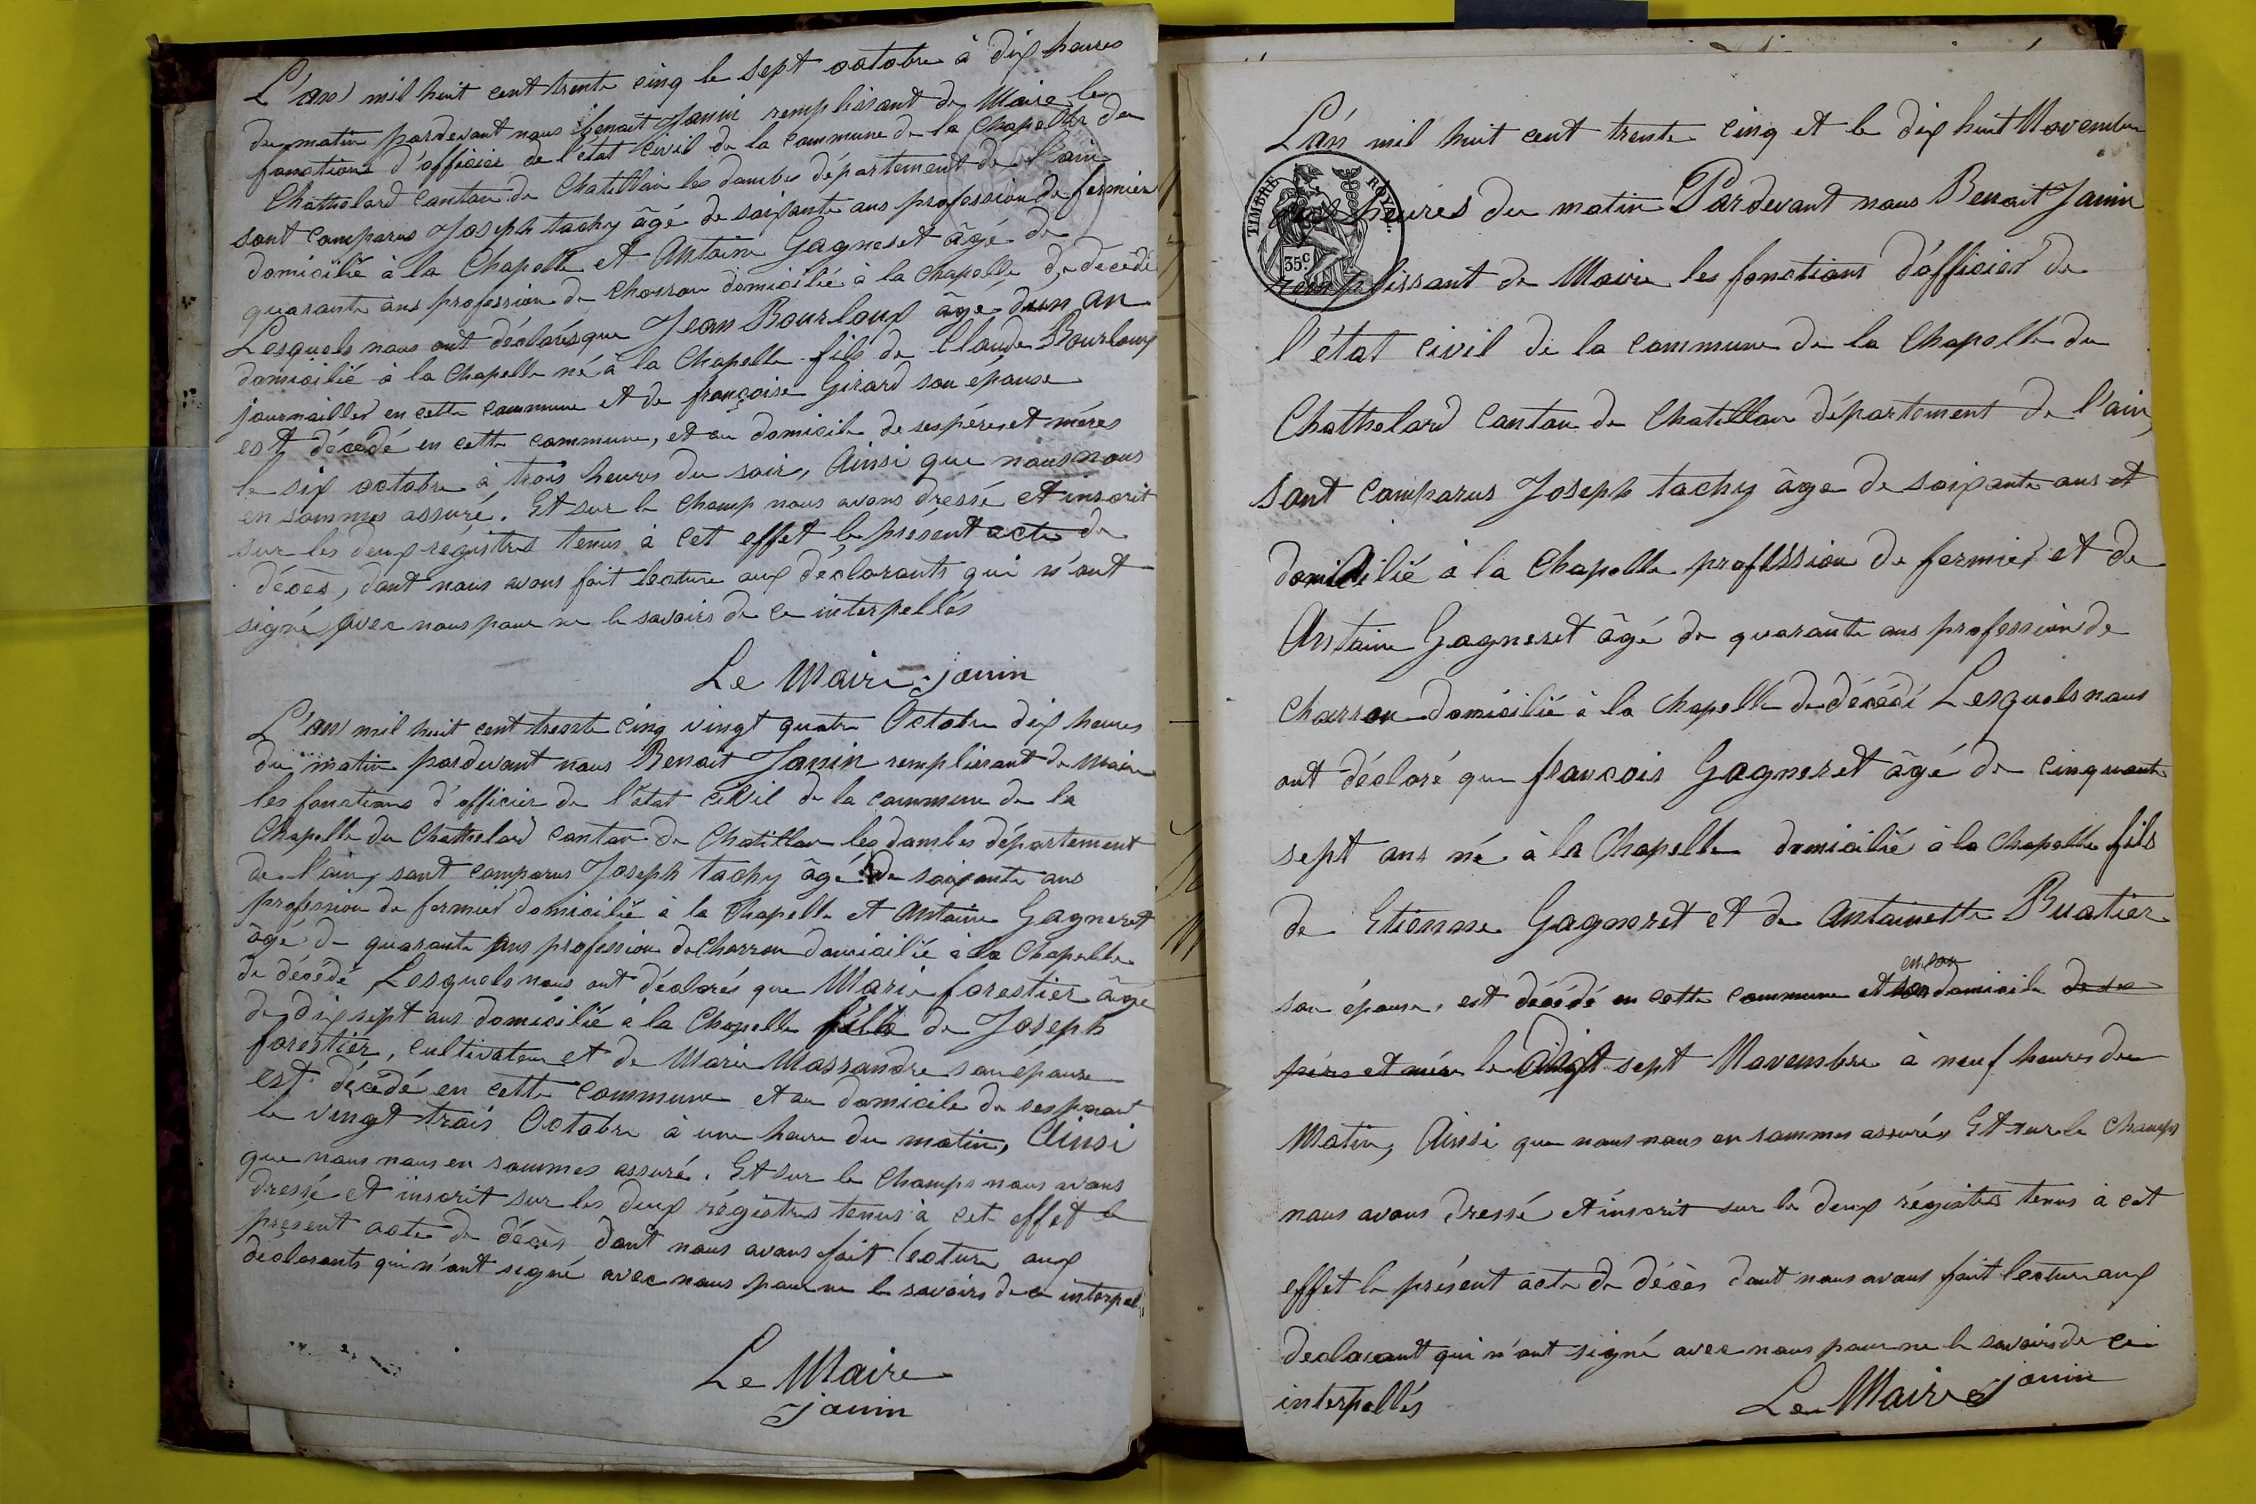 L'an mil huit cent trente cinq le sept octobre à dix heures
du matin pardevant nous Benoit Janin remplissant de Maire les
fonctions d'officier de l'état civil de la commune de la Chapelle du
Chathelard canton de Chatillon les dombes département de l'ain
sont comparus Joseph tachy âgé de soixante ans profession de fermier
domicilié à la Chapelle et Antoine Gagneret âgé de
quarante ans profession de charron domicilié à la chapelle de décédé
Lesquels nous ont déclarés que Jean Bourloux âgé d'un an
domicilié à la Chapelle né à la Chapelle fils de Claude Bourloux
journaillier en cette commune et de françoise Girard son épouse
est décédé en cette commune, et au domicile de ses péres et méres
le six octobre à trois heures du soir, Ainsi que nous nous
en sommes assuré. Et sur le champ nous avons dressé et inscrit
sur les deux régistres tenus à cet effet le présent acte de
décès, dont nous avons fait lecture aux déclarants qui n'ont
signé avec nous pour ne le savoirs de ce interpellés
Le Maire janin
L'an mil huit cent trente cinq vingt quatre Octobre dix heures
du matin pardevant nous Benoit Janin remplissant de Maire
les fonctions d'officier de l'état civil de la commune de la
Chapelle du Chathelard canton de Chatillon les dombes département
de l'ain, sont comparus Joseph tachy âgé de soixante ans
profession de fermier domicilié à la Chapelle et Antoine Gagneret
âgé de quarante ans profession de charron domicilié à la Chapelle
de décédé Lesquels nous ont déclarés que Marie forestier âgé
de dix sept ans domicilié à la Chapelle fille de Joseph
forestier, cultivateur et de Marie Massandre son épouse
est décédé en cette commune et au domicile de ses parant
le vingt trois Octobre à une heure du matin, Ainsi
que nous nous en sommes assuré. Et sur le Champs nous avons
dressé et inscrit sur les deux régistres tenus à cet effet le
présent acte de décès dont nous avons fait lecture aux
déclarants qui n'ont signé avec nous pour ne le savoirs de ce interpel
Le Maire
janin
L'an mil huit cent trente cinq et le dix huit Novembre
TIMBRE ROYAL.
35c
heures du matin Pardevant nous Benoit Janin
remplissant de Maire les fonctions d'officier de
l'état civil de la commune de la Chapelle du
Chathelard canton de Chatillon département de l'ain,
sont comparus Joseph tachy âge de soixante ans et
domicilié à la Chapelle profession de fermier et de
Antoine Gagneret âgé de quarante ans profession de
charron domicilié à la Chapelle de décédé Lesquels nous
ont déclaré que francois Gagneret âgé de cinquante
sept ans né à la Chapelle domicilié à la Chapelle fils
de Etienne Gagneret et de Antoinette Buatier
en son
son épouse, est décédé en cette commune et domicile de ses
péres et mére le dix sept Novembre à neuf heures du
Matin, Ainsi que nous nous en sommes assurés Et sur le champs
nous avons dressé et inscrit sur le deux régistres tenus à cet
effet le présent acte de décès dont nous avons fait lecture aux
declarant qui n'ont signé avec nous pour ne le savoirs de ce
interpellés
Le Maire janin